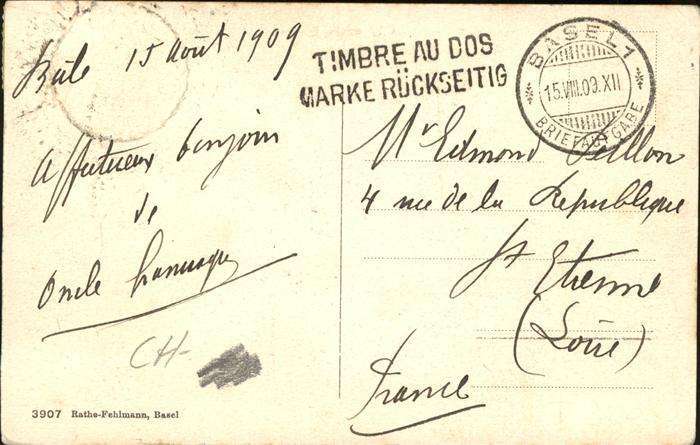 Bâle 15 Août 1909
TIMBRE AU DOS
MARKE RÜCKSEITIG
BASEL 1
15.VIII.09.XII
BRIEFAUFGABE
Affectueux bonjour
de
Oncle
Mr Edmond
4 rue de la Republique
St Etienne
(Loire)
France
CH-
3907 Rathe-Fehlmann, Basel